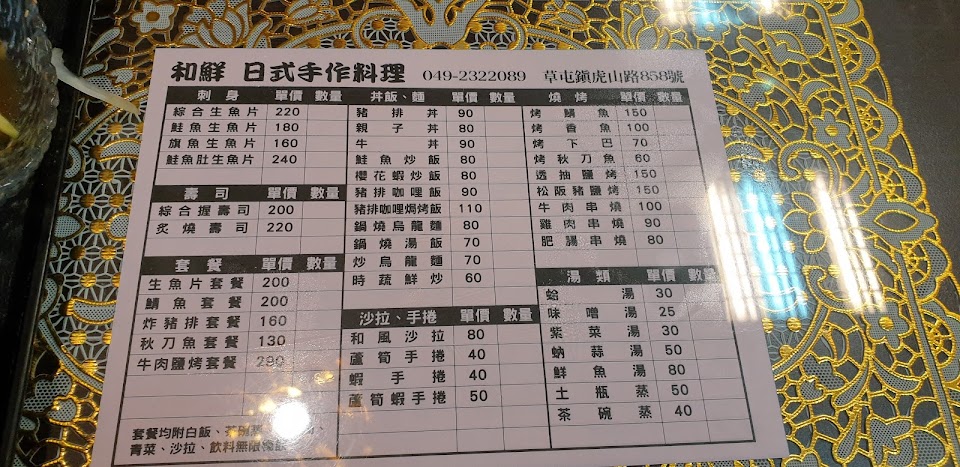 和鮮 日式手作料理 049-2322089 草屯鎮虎山路858號
刺身 單價 數量
綜合生魚片 220
鮭魚生魚片 180
旗魚生魚片 160
鮭魚肚生魚片 240
壽司 單價 數量
綜合握壽司 200
炙燒壽司 220
套餐 單價 數量
生魚片套餐 200
鯖魚套餐 200
炸豬排套餐 160
秋刀魚套餐 130
牛肉鹽烤套餐 290
套餐均附白飯、
青菜、沙拉、飲料無限
丼飯、麵 單價 數量
豬排丼 90
親子丼 80
牛丼 90
鮭魚炒飯 80
櫻花蝦炒飯 80
豬排咖哩飯 90
豬排咖哩焗烤飯 110
鍋燒烏龍麵 80
鍋燒湯飯 70
炒烏龍麵 70
時蔬鮮炒 60
沙拉、手捲 單價 數量
和風沙拉 80
蘆筍手捲 40
蝦手捲 40
蘆筍蝦手捲 50
燒烤 單價 數量
烤鯖魚 150
烤香魚 100
烤下巴 70
烤秋刀魚 60
透抽鹽烤 150
松阪豬鹽烤 150
牛肉串燒 100
雞肉串燒 90
肥腸串燒 80
湯類 單價 數量
蛤湯 30
味噌湯 25
紫菜湯 30
蚋蒜湯 50
鮮魚湯 80
土瓶蒸 50
茶碗蒸 40